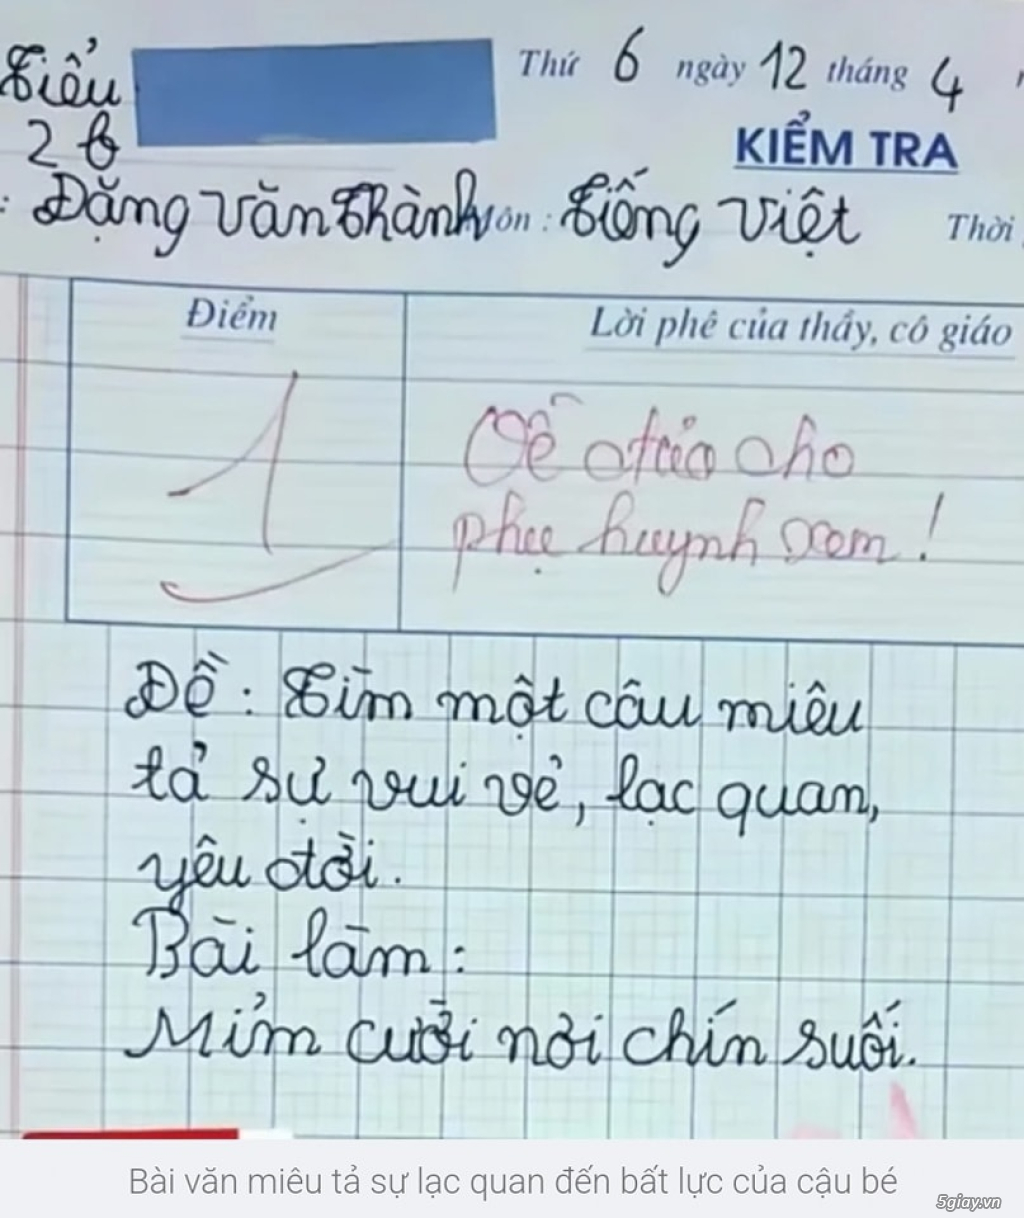 Tiểu
Thứ 6 ngày 12 tháng 4
2 b
KIỂM TRA
: Đặng Văn Thành Môn : Tiếng Việt Thời
Điểm
Lời phê của thầy, cô giáo
1
Về đưa cho
phụ huynh xem !
Đề : Tìm một câu miêu
tả sự vui vẻ, lạc quan,
yêu đời.
Bài làm :
Mỉm cười nơi chín suối.
Bài văn miêu tả sự lạc quan đến bất lực của cậu bé
5giay.vn